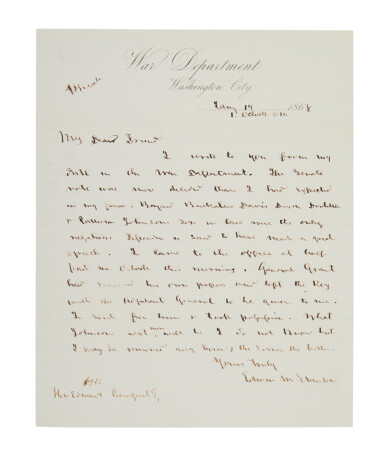 War Department
Washington City.
Private
Jany 14 1868
1 o'clock
My Dear Friend
I write to you from my
in the War Department. The Senate
vote was more decided than I had expected
in my favor. Bayard Buckalew Davis Dixon Doolittle
& Patterson Johnsons son in law were the only
negatives. is said to have made a good
speech. I came to the office at half
past o'clock this morning. General Grant
had removed his own papers and left the key
with the Adjutant General to be given to me.
I sent for him & took possession. What
Johnsons next move will be I do not know but
I may be removed any hour & the sooner the better.
Yours truly
Edwin M Stanton
Hon Edwards Pierrepont